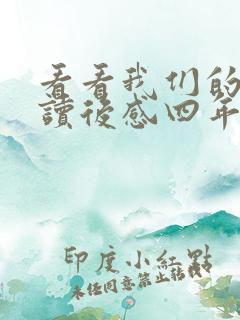 看看我们的
讀後感四年
印度小紅點
未经同意禁止转载